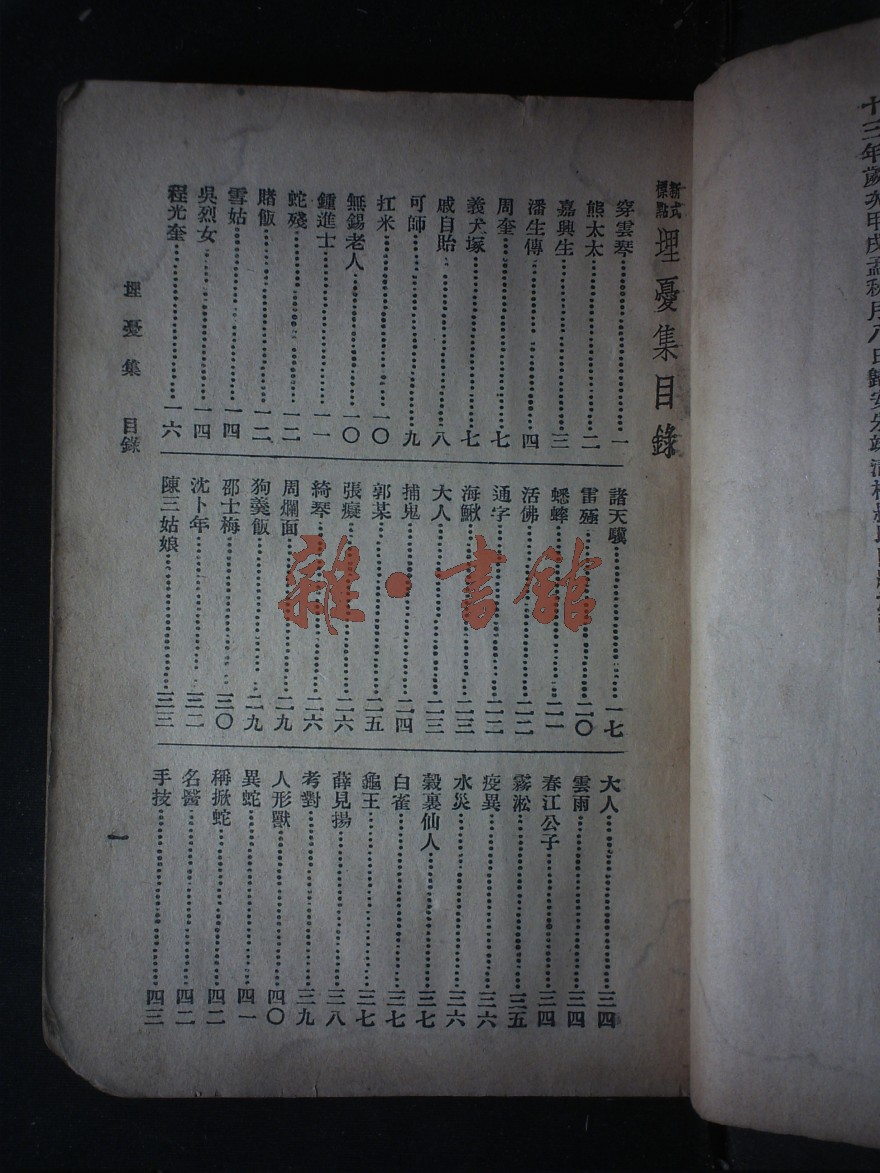 新式
標點
埋憂集目錄
穿雲琴⋯⋯一
熊太太⋯⋯二
嘉興生⋯⋯三
潘生傳⋯⋯四
周奎⋯⋯七
義犬塚⋯⋯七
戚自貽⋯⋯八
可師⋯⋯九
扛米⋯⋯一〇
無錫老人⋯⋯一〇
鍾進士⋯⋯一一
蛇殘⋯⋯一二
賭飯⋯⋯一二
雪姑⋯⋯一四
吳烈女⋯⋯一四
程光奎⋯⋯一六
諸天驥⋯⋯一七
雷殛⋯⋯二〇
蟋蟀⋯⋯二一
活佛⋯⋯二二
通字⋯⋯二二
海鰍⋯⋯二三
大人⋯⋯二三
捕鬼⋯⋯二四
郭某⋯⋯二五
張癡⋯⋯二六
綺琴⋯⋯二六
周爛面⋯⋯二九
狗羹飯⋯⋯二九
邵士梅⋯⋯三〇
沈卜年⋯⋯三二
陳三姑娘⋯⋯三三
大人⋯⋯三四
雲雨⋯⋯三四
春江公子⋯⋯三四
霧淞⋯⋯三五
疫異⋯⋯三六
水災⋯⋯三六
穀裏仙人⋯⋯三七
白雀⋯⋯三七
龜王⋯⋯三七
薛見揚⋯⋯三八
考對⋯⋯三九
人形獸⋯⋯四〇
異蛇⋯⋯四一
稱掀蛇⋯⋯四二
名醫⋯⋯四二
手技⋯⋯四三
埋憂集 目錄
一
雜·書館
十三年歲